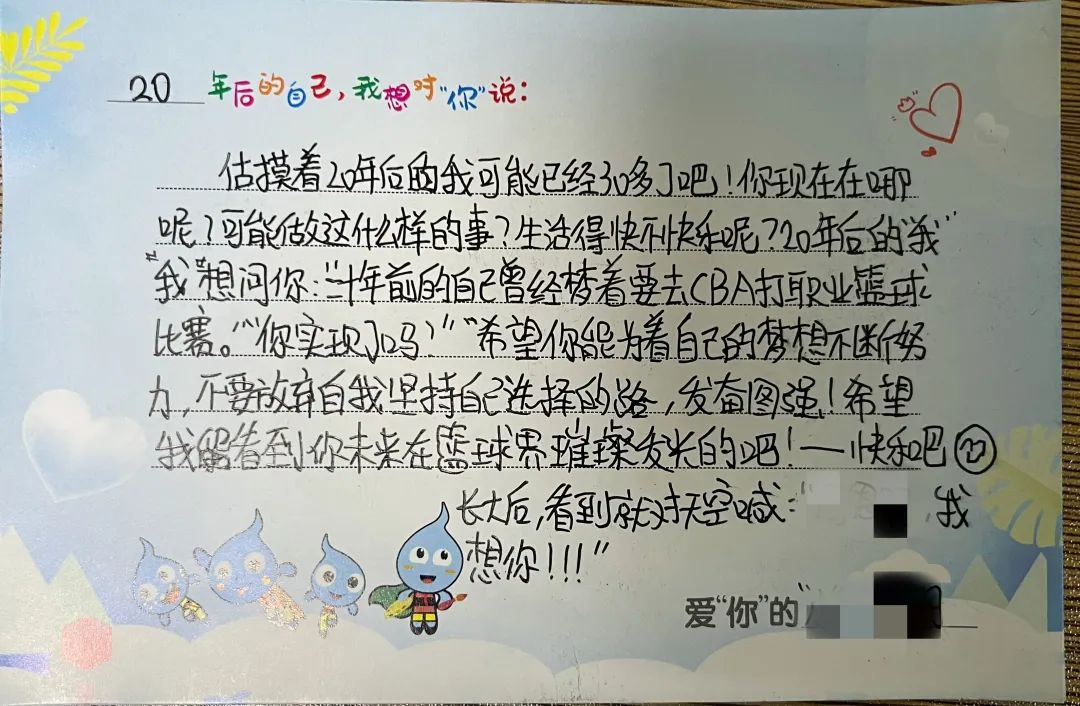 20 年后的自己，我想对“你”说：
估摸着20年后的我可能已经30多了吧！你现在在哪
呢？可能做这什么样的事？生活得快不快乐呢？20年后的“我”
“我”想问你：“二十年前的自己曾经梦着要去CBA打职业篮球
比赛。”“你实现了吗？”“希望你能为着自己的梦想不断努
力，不要放弃自我坚持自己选择的路，发奋图强！希望
我能看到你未来在篮球界璀璨发光的吧！——快乐吧
长大后，看到就对天空喊：“ ，我
想你！！！”
爱“你”的